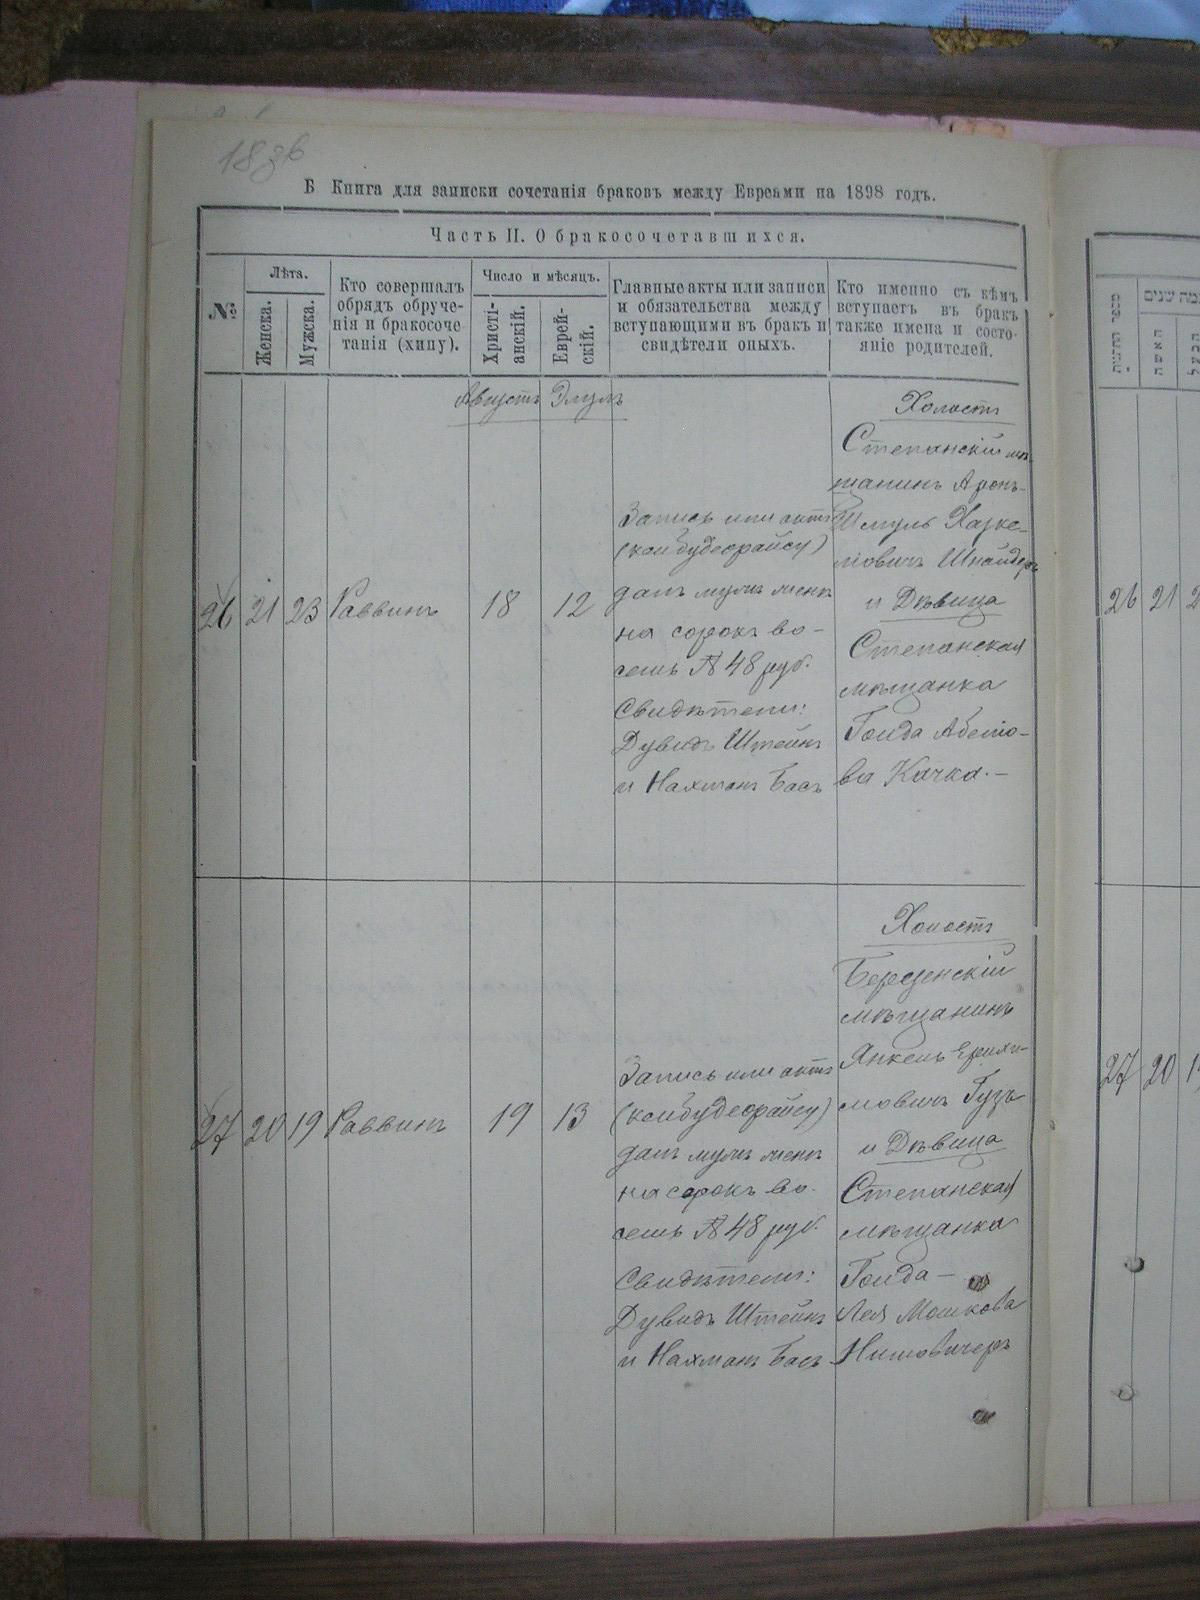 18зв
Б Книга для записки сочетанія браковъ между Евреами на 1898 годъ.
Часть II. О бракосочетавшихся.
№
Лѣта.
Женска.
Мужска.
Кто совершалъ
обрядъ обруче-
нія и бракосоче
танія (хипу).
Число и мѣсяцъ.
Христі-
анскій.
Еврей-
скій.
Главные акты или записи
и обязательства между
вступающими въ бракъ и
свидѣтели оныхъ.
Кто именно съ кѣмъ
вступаетъ въ бракъ
также имена и состо-
яніе родителей.
Августъ Элулъ
26 21 23 Раввинъ 18 12
Запись или актъ
далъ мужъ женѣ
на сорокъ во-
семь 48 руб.
Свидѣтели:
Дувидъ Штейнъ
и Нахманъ Басъ
Холостъ
Степанскій мѣ-
щанинъ Аронъ-
Шмуль Хаске-
ліовичъ Шнайдеръ
и Дѣвица
Степанская
мѣщанка
Голда Абеліо-
ва Качка.—
27 20 19 Раввинъ 19 13
Запись или актъ
далъ мужъ женѣ
на сорокъ во-
семь 48 руб.
Свидѣтели:
Дувидъ Штейнъ
и Нахманъ Басъ
Холостъ
мѣщанинъ
Янкель
Гузъ
и Дѣвица
Степанская
мѣщанка
Голда—
Лея Мошкова
האשה
26 21 2
27 20 1